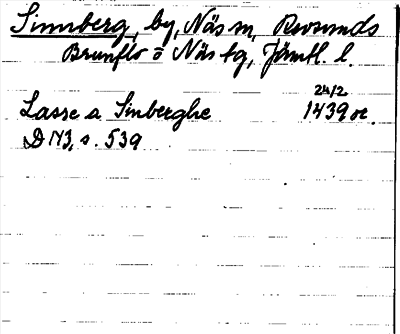 Sinnberg, by, Näs sn, Revsunds
Brunflo o Näs tg, Jämtl. l.
24/2
Lasse a Sinberghe 1439 or.
DN 3, s. 539